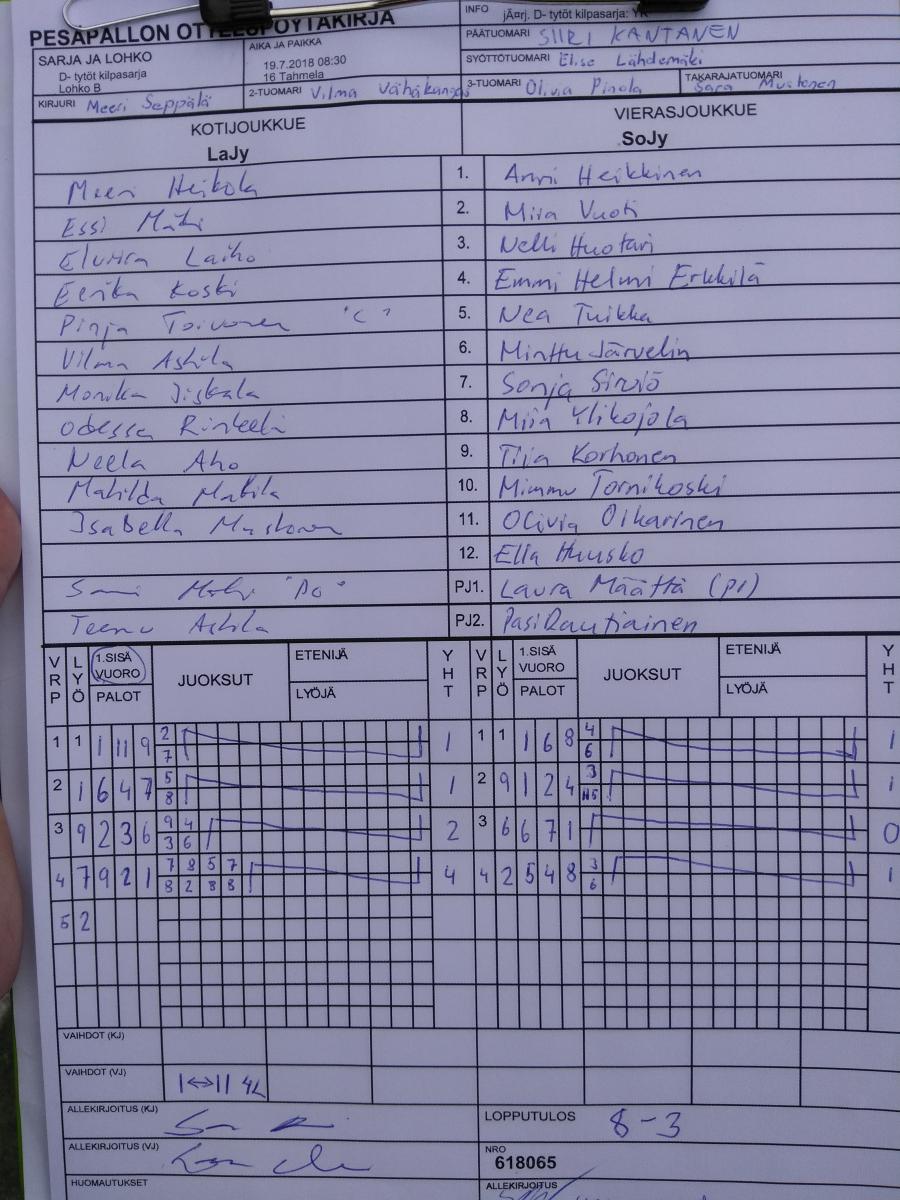 PESAPALLON OTTELUPÖYTÄKIRJA
INFO jÄ¤rj. D- tytöt kilpasarja: YK
SARJA JA LOHKO
D- tytöt kilpasarja
Lohko B
AIKA JA PAIKKA
19.7.2018 08:30
16 Tahmela
PÄÄTUOMARI SIIRI KANTANEN
SYÖTTÖTUOMARI Elise Lähdemäki
KIRJURI Meeri Seppälä
2-TUOMARI Vilma Vähäkangas
3-TUOMARI Olivia Pinola
TAKARAJATUOMARI Sara Mustonen
KOTIJOUKKUE VIERASJOUKKUE
LaJy SoJy
Meeri Heikola 1. Anni Heikkinen
Essi Mäki 2. Miia Vuoti
Laiho 3. Nelli Huotari
Eerika Koski 4. Emmi Helmi Erkkilä
Pinja Toivonen "C" 5. Nea Tuikka
Vilma Askila 6. Minttu Järvelin
Monika 7. Sonja Sirviö
Odessa 8. Miia Ylikojola
Neela Aho 9. Tiia Korhonen
Matilda Matila 10. Mimmu Tornikoski
Isabella Mustonen 11. Olivia Oikarinen
12. Ella Huusko
PJ1. Laura Määttä (p1)
Teemu Askila PJ2. Pasi Rautiainen
VRP LYÖ 1.SISÄ VUORO PALOT JUOKSUT ETENIJÄ LYÖJÄ YHT VRP LYÖ 1.SISÄ VUORO PALOT JUOKSUT ETENIJÄ LYÖJÄ YHT
1 1 1 11 9 2 1 1 1 1 6 8 4 1
7 6
2 1 6 4 7 5 1 2 9 1 2 4 3 1
8 11 5
3 9 2 3 6 9 4 2 3 6 6 7 1 0
3 6
4 7 9 2 1 7 8 5 7 4 4 2 5 4 8 3 1
8 2 8 8 6
5 2
VAIHDOT (KJ)
VAIHDOT (VJ) 1↔11 4L
ALLEKIRJOITUS (KJ) LOPPUTULOS 8-3
ALLEKIRJOITUS (VJ) NRO
618065
HUOMAUTUKSET ALLEKIRJOITUS